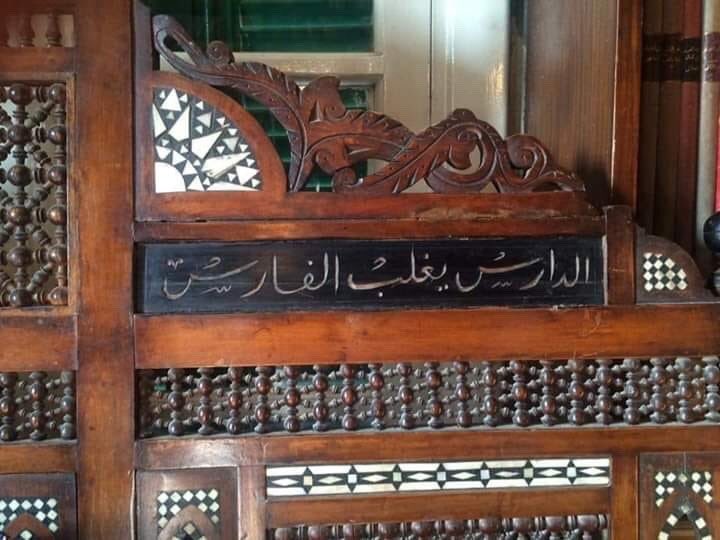 الدارس يغلب الفارس